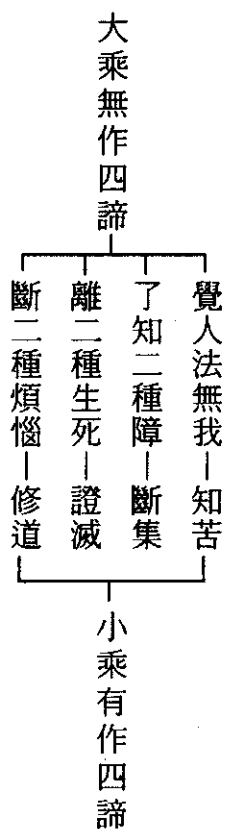 大乘無作四諦
覺人法無我—知苦
了知二種障—斷集
離二種生死—證滅
斷二種煩惱—修道
小乘有作四諦